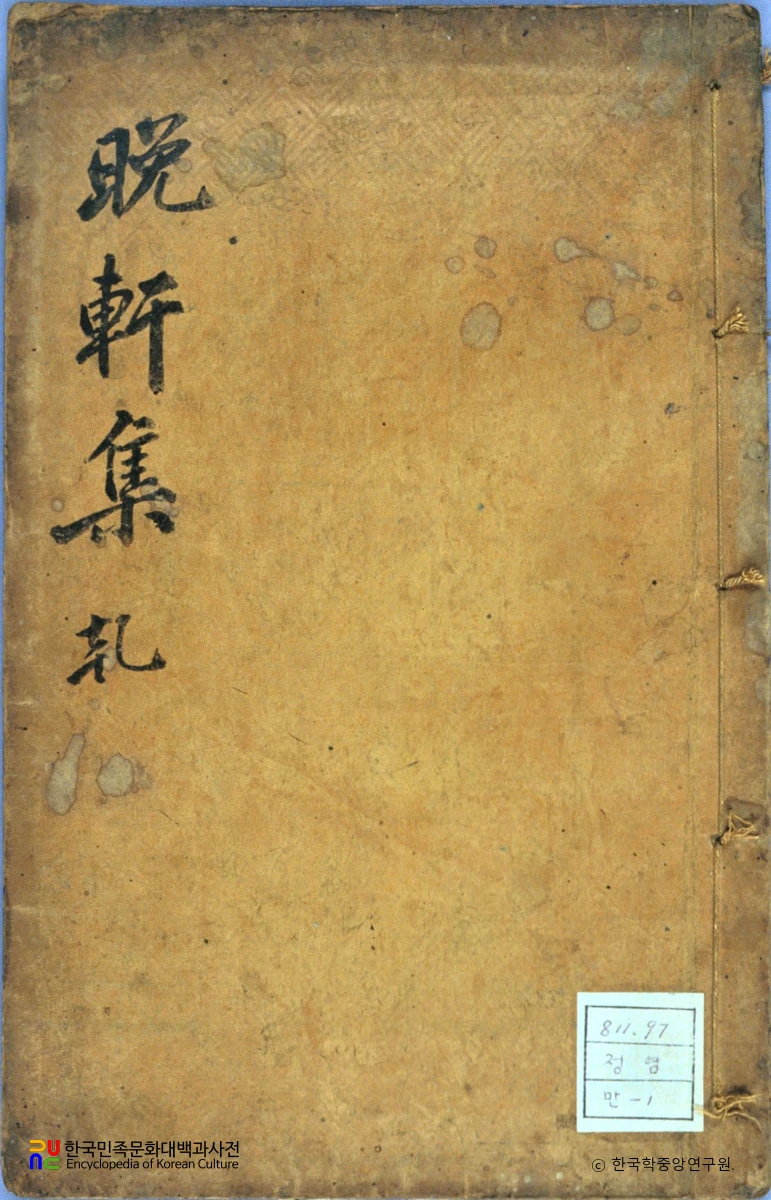 晩軒集 乹
811.97
정 염
만-1
한국민족문화대백과사전
Encyclopedia of Korean Culture
© 한국학중앙연구원.